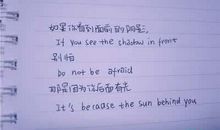 如果你看到面前的阴影，
If you see the shadow in front
别怕
Do not be afraid
那是因为你后面有光
It's because the sun behind you